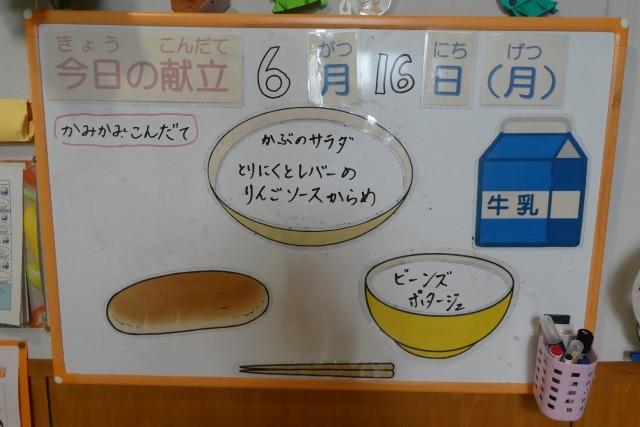 きょう こんだて がつ にち げつ
今日の献立 6月16日(月)
かみかみこんだて
かぶのサラダ
とりにくとレバーの
りんごソースからめ
牛乳
ビーンズ
ポタージュ